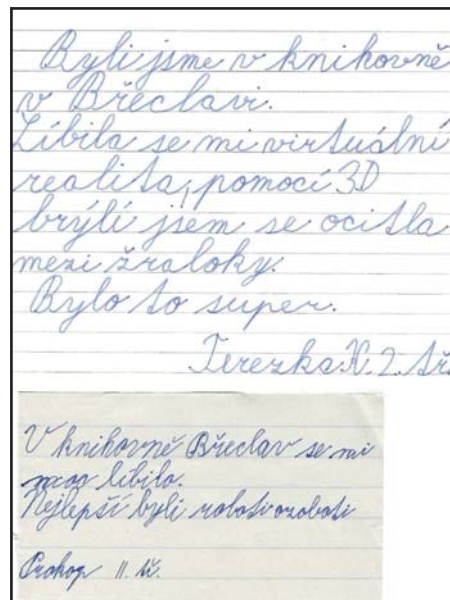 Byli jsme v knihovně
v Břeclavi.
Líbila se mi virtuální
realita, pomocí 3D
brýlí jsem se ocitla
mezi žraloky.
Bylo to super.
Terezka K. 2. tř.
V knihovně Břeclav se mi
moc líbilo.
Nejlepší byli roboti ozoboti
Prokop II. tř.